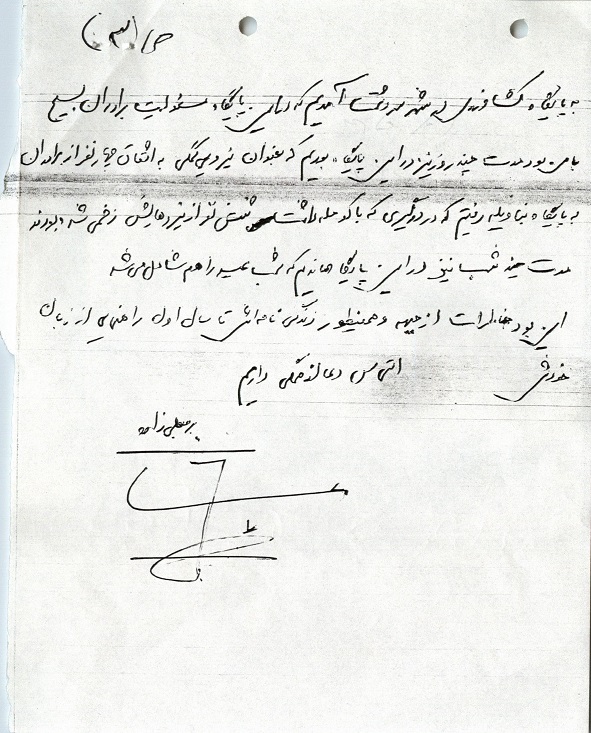 ص (۳۰)
به پایگاه کشاورزی در شهر سردشت آمدیم که در این پایگاه مسئولیت برادران بسیج
با من بود مدت چند روز نیز در این پایگاه بودیم که بعنوان نیروی کمکی به اتفاق چهار نفر از برادران
به پایگاه رفتیم که در درگیری که با کومله داشتند شش نفر از نیروهایش زخمی شده بودند
مدت چند شب نیز در این پایگاه ماندیم که شب عید را هم شامل می‌شد
این بود خاطرات از جبهه و همینطور زندگی نامه‌اش تا سال اول راهنمایی از زبان
خودش التماس دعا از همگی داریم